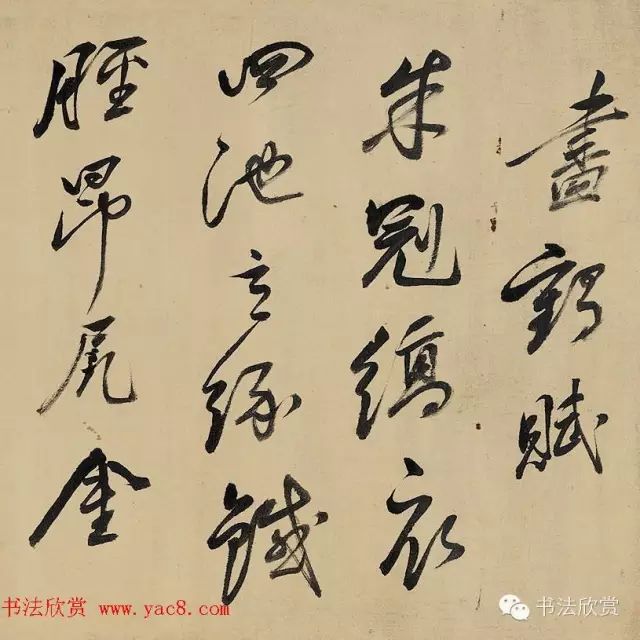 畫鶴賦
朱冠縞衣
曲池之緣鐵
脛昂尾金
书法欣赏 www.yac8.com
书法欣赏